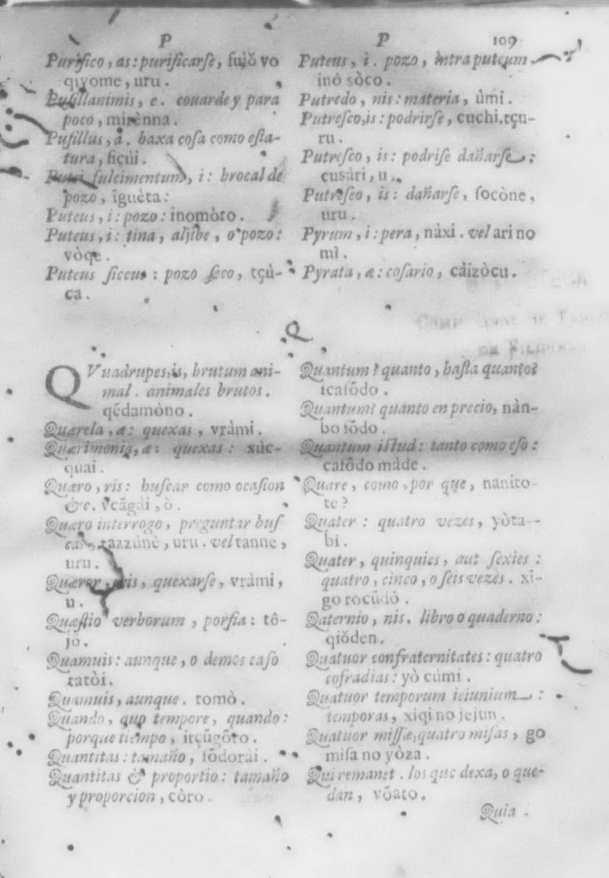 P P 109
Purifico, as: purificarse, sujŏ vo
qiyome, uru.
Pusillanimis, e. couarde y para
poco, mirènna.
Pusillus, a. baxa cosa como esta-
tura, ficùi.
Putei fulcimentum, i: brocal de
pozo, igueta:
Puteus, i: pozo: inomòto.
Puteus, i: tina, aljibe, o pozo:
vòqe.
Puteus siccus: pozo seco, tçú-
ca.
Puteus, i. pozo, intra puteum.
inó sòco.
Putredo, nis: materia, ùmi.
Putresco, is: podrirse, cuchi, tçu-
ru.
Putresco, is: podrise dañarse:
cusàri, u.
Putresco, is: dañarse, socòne,
uru.
Pyrum, i: pera, nàxi. vel ari no
mi.
Pyrata, æ: cosario, càizòcu.
Q
QVuadrupes, is, brutum ani-
mal. animales brutos.
qèdamòno.
Quærela, æ: quexas, vràmi.
Quærimonia, æ: quexas: xúc-
quai.
Quæro, ris: buscar como ocasion
&c. vcāgài, ò.
Quæro interrogo, preguntar bus
car, tazzúnè, uru. vel tanne,
uru.
Quæror, ris, quexarse, vràmi,
u.
Quæstio verborum, porfia: tô-
jo.
Quamuis: aunque, o demos caso
tatòi.
Quamuis, aunque. tomò.
Quando, quo tempore, quando:
porque tiempo, itçùgòro.
Quantitas: tamaño, fŏdorai.
Quantitas & proportio: tamaño
y proporcion, còro.
Quantum? quanto, hasta quanto?
icafŏdo.
Quantum? quanto en precio, nàn-
bo fŏdo.
Quantum istud: tanto como eso:
cafŏdo màde.
Quare, como, por que, nanito-
te?
Quater: quatro vezes, yòta-
bi.
Quater, quinquies, aut sexies:
quatro, cinco, o seis vezes. xi-
go rocúdŏ.
Qaternio, nis. libro o quaderno:
qiŏden.
Quatuor confraternitates: quatro
cofradias: yò cùmi.
Quatuor temporum ieiunium:
temporas, xiqi no jejun.
Quatuor missæ, quatro misas, go
misa no yòza.
Qui remanet. los que dexa, o que-
dan, vŏato.
Quia.